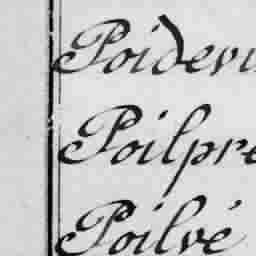 Poidevi
Poilpre
Poilvé